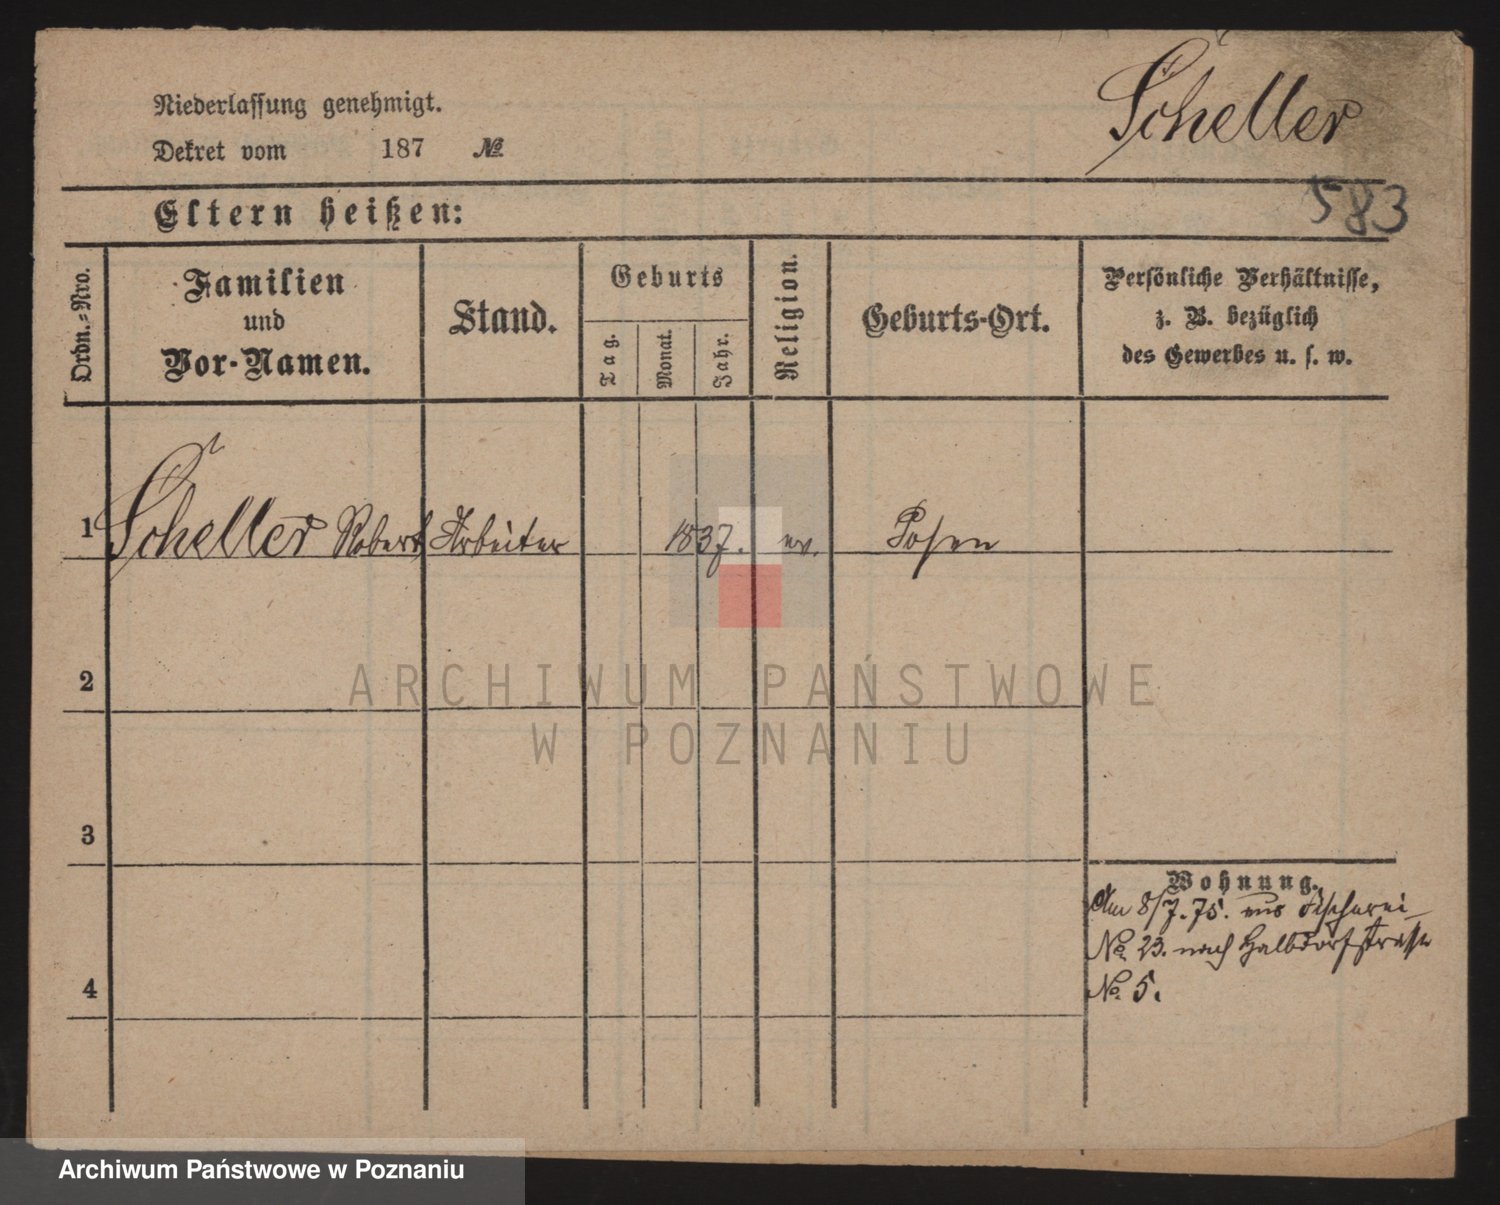 Scheller
Niederlassung genehmigt.
Dekret vom 187 №
583
Eltern heißen:
Ordn.-Nro.
Familien
und
Vor-Namen.
Stand.
Geburts
Tag.
Monat.
Jahr.
Religion.
Geburts-Ort.
Persönliche Verhältnisse,
z. B. bezüglich
des Gewerbes u. s. w.
1 Scheller Robert Arbeiter 1837. ev. Posen
2
3
4
Wohnung.
Am 8/7.75. aus Fischerei
No 23. nach Halbdorfstrasse
No 5.
ARCHIWUM PAŃSTWOWE
W POZNANIU
Archiwum Państwowe w Poznaniu